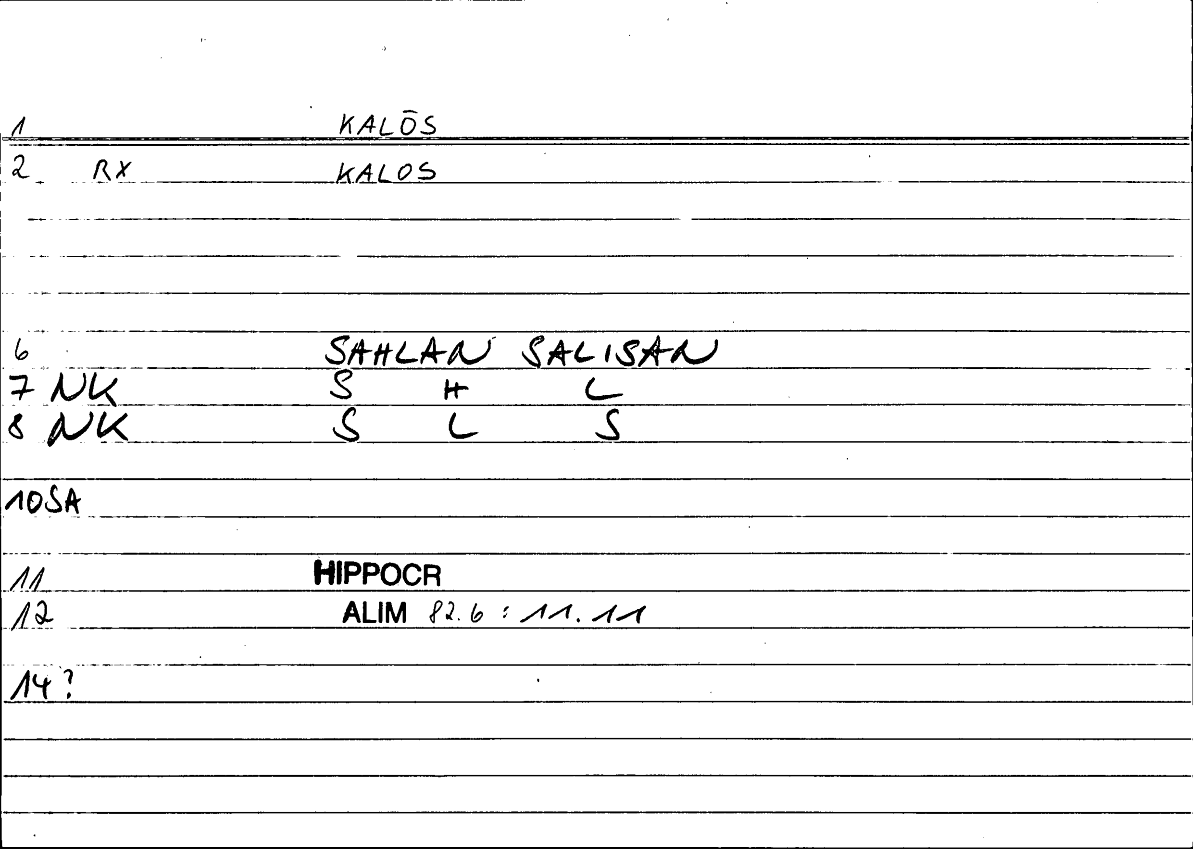 1 KALŌS
2 RX KALOS
6 SAHLAN SALISAN
7 NK S H L
8 NK S L S
10 SA
11 HIPPOCR
12 ALIM 82.6 : 11.11
14 ?